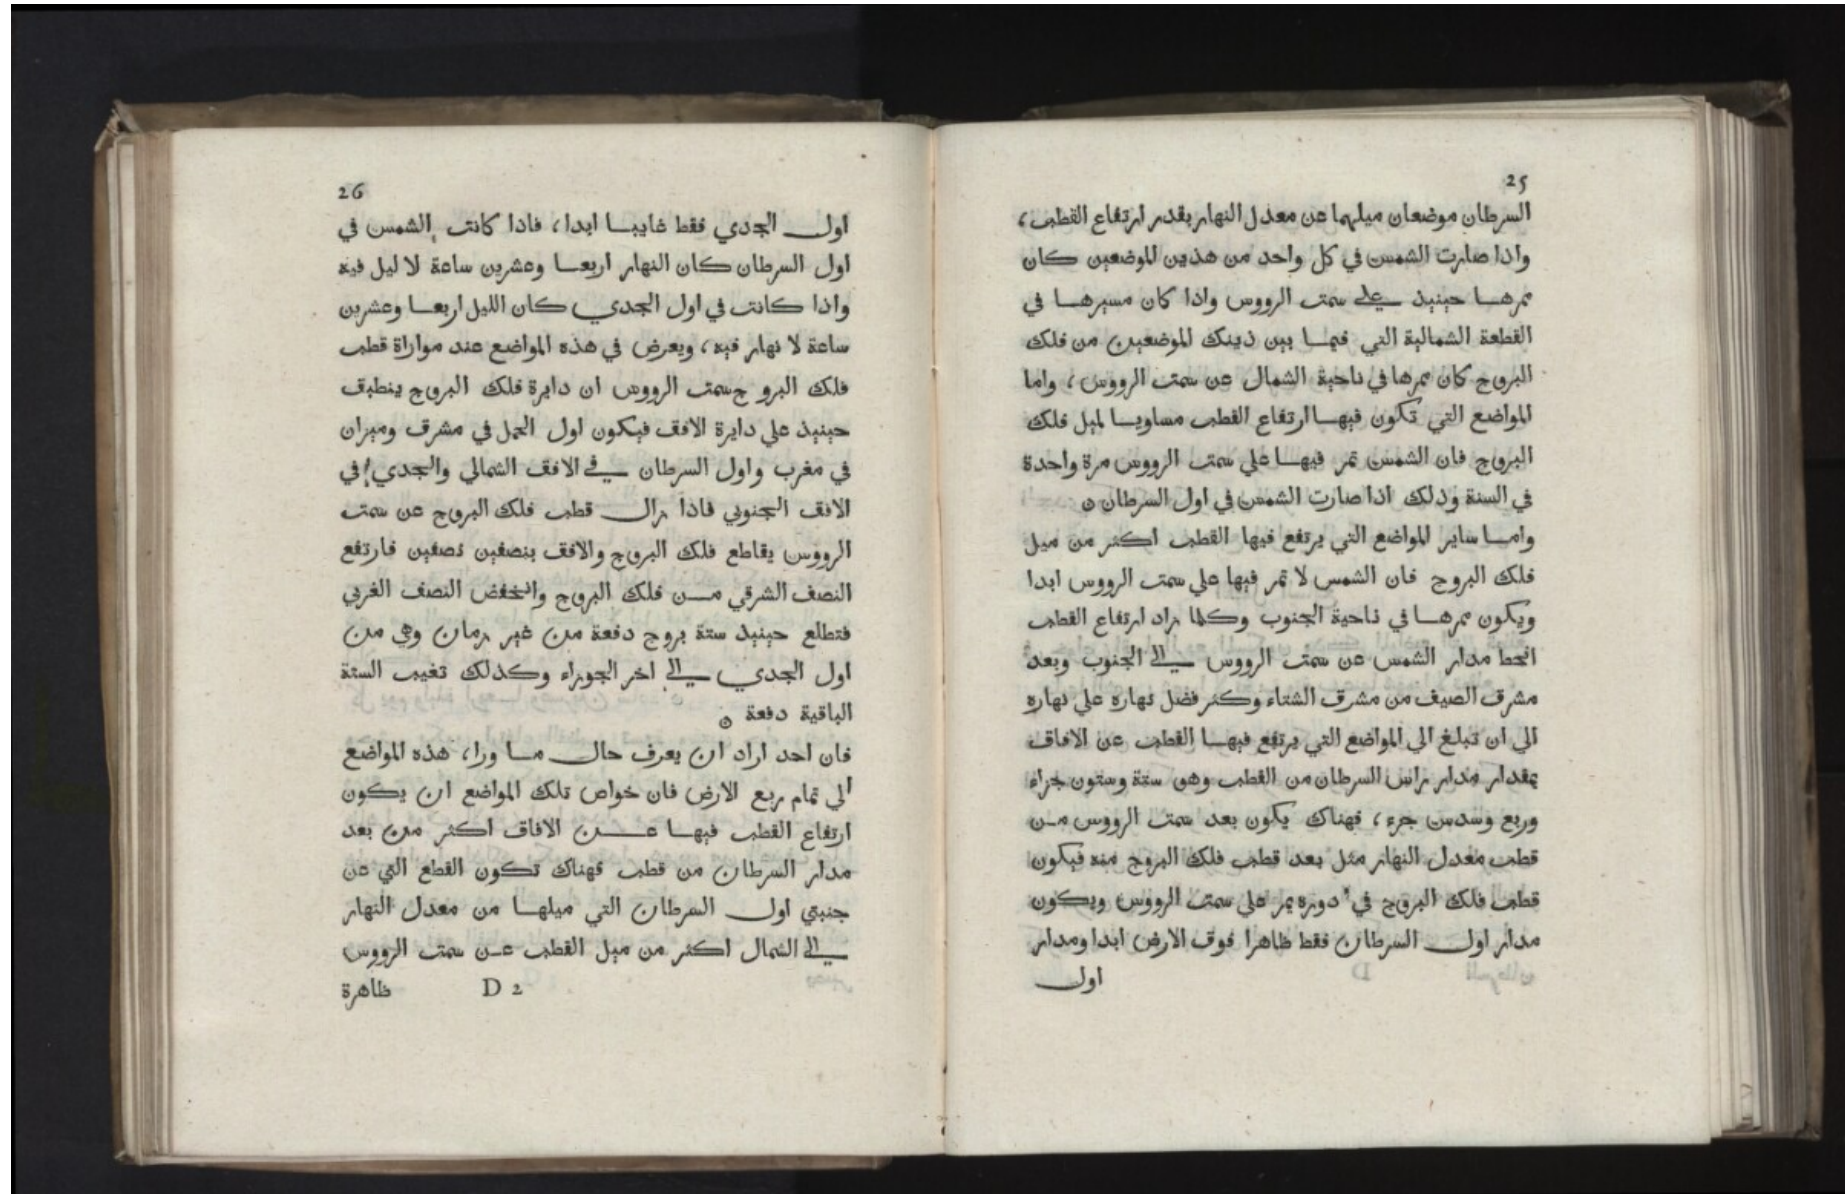 25
السرطان موضعان ميلهما عن معدل النهار بقدر ارتفاع القطب،
واذا صارت الشمس في كل واحد من هذين الموضعين كان
ممرهــا حينيذ علي سمت الرووس واذا كان مسيرهــا في
القطعة الشمالية التي فيمــا بين ذينك الموضعين من فلك
البروج كان ممرها في ناحية الشمال عن سمت الرووس، واما
المواضع التي تكون فيهــا ارتفاع القطب مساويــا لميل فلك
البروج فان الشمس تمر فيهــا علي سمت الرووس مرة واحدة
في السنة وذلك اذا صارت الشمس في اول السرطان ٥
وامــا ساير المواضع التي يرتفع فيها القطب اكثر من ميل
فلك البروج فان الشمس لا تمر فيها علي سمت الرووس ابدا
ويكون ممرهــا في ناحية الجنوب وكلما زاد ارتفاع القطب
انحط مدار الشمس عن سمت الرووس الي الجنوب وبعد
مشرق الصيف من مشرق الشتاء وكثر فضل نهاره علي نهاره
الي ان تبلغ الي المواضع التي يرتفع فيهــا القطب عن الافاق
بمقدار مدار راس السرطان من القطب وهو ستة وستون جزاء
وربع وسدس جزء، فهناك يكون بعد سمت الرووس مــن
قطب معدل النهار مثل بعد قطب فلك البروج منه فيكون
قطب فلك البروج في دوره يمر علي سمت الرووس ويكون
مدار اول السرطان فقط ظاهرا فوق الارض ابدا ومدار
اول
26
اول الجدي فقط غايبــا ابدا، فاذا كانت الشمس في
اول السرطان كان النهار اربعــا وعشرين ساعة لا ليل فيه
واذا كانت في اول الجدي كان الليل اربعــا وعشرين
ساعة لا نهار فيه، ويعرض في هذه المواضع عند موازاة قطب
فلك البرو ج سمت الرووس ان دايرة فلك البروج ينطبق
حينيذ علي دايرة الافق فيكون اول الحمل في مشرق وميزان
في مغرب واول السرطان في الافق الشمالي والجدي في
الافق الجنوبي فاذا زال قطب فلك البروج عن سمت
الرووس يقاطع فلك البروج والافق بنصفين نصفين فارتفع
النصف الشرقي مــن فلك البروج وانخفض النصف الغربي
فتطلع حينيذ ستة بروج دفعة من غير زمان وهي من
اول الجدي الي اخر الجوزاء وكذلك تغيب الستة
الباقية دفعة ٥
فان احد اراد ان يعرف حال مــا ورا، هذه المواضع
الي تمام ربع الارض فان خواص تلك المواضع ان يكون
ارتفاع القطب فيهــا عــن الافاق اكثر من بعد
مدار السرطان من قطب فهناك تكون القطع التي عن
جنبتي اول السرطان التي ميلهــا من معدل النهار
الي الشمال اكثر من ميل القطب عــن سمت الرووس
D 2
ظاهرة